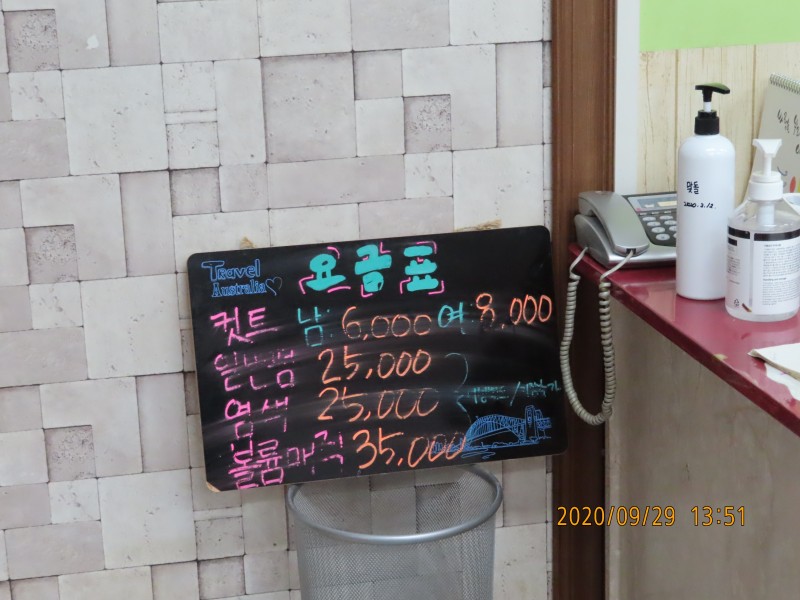 Travel
Australia
요금표
컷트 남 6,000 여 8,000
일반펌 25,000
염색 25,000
볼륨매직 35,000
2020.2.12.
2020/09/29 13:51